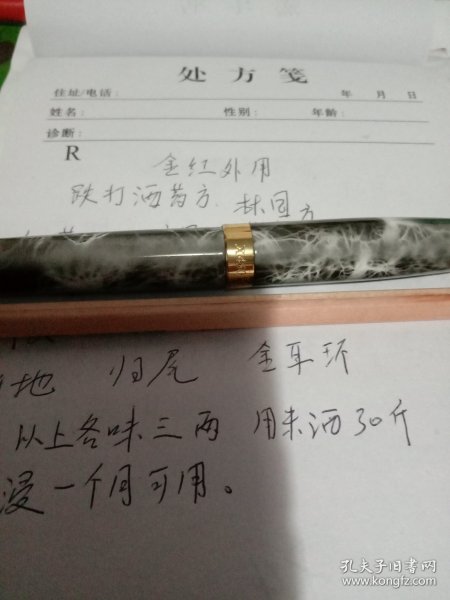 处方笺
住址/电话： 年 月 日
姓名： 性别： 年龄：
诊断：
R
金红外用
跌打酒药方 林国方
地 归尾 金耳环
以上各味三两 用米酒30斤
浸一个月可用。
孔夫子旧书网
www.kongfz.com